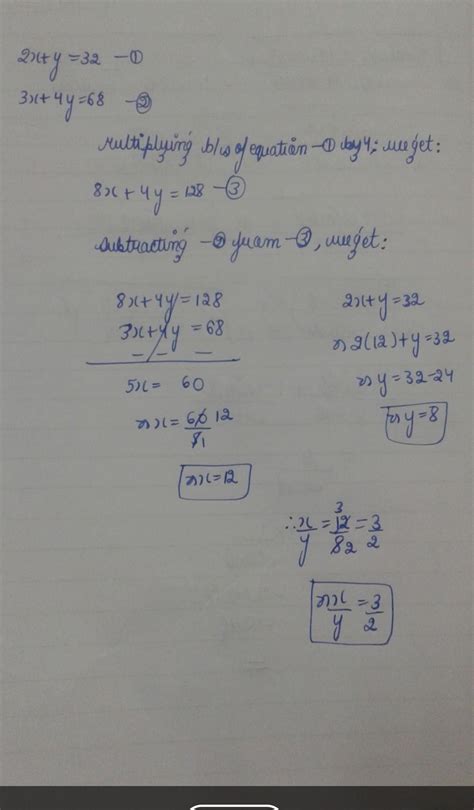 2x+y=32 —①
3x+4y=68 —②
Multiplying b/s of equation —① by 4; we get:
8x+4y=128 —③
Subtracting —② from —③, we get:
8x+4y=128
3x+4y=68
— — —
5x= 60
⇒x=60/5 12 1
⇒x=12
2x+y=32
⇒2(12)+y=32
⇒y=32-24
⇒y=8
∴x/y=12/8 3 2=3/2
⇒x/y=3/2